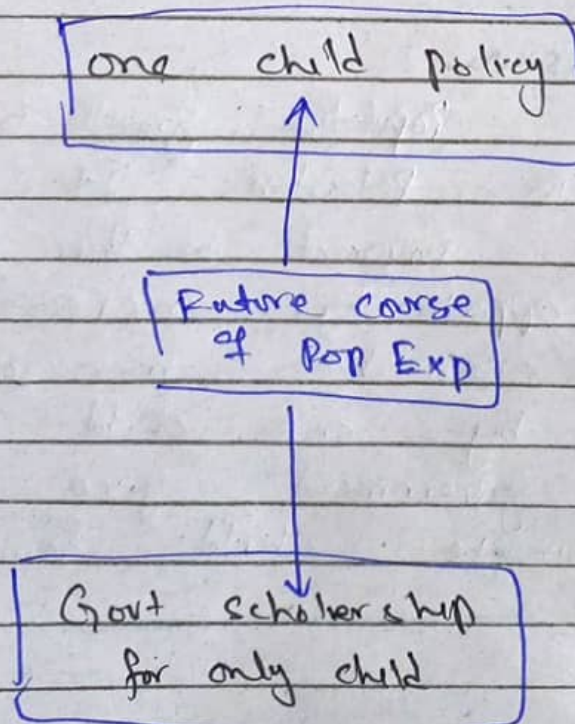 one child policy
Future course
of Pop Exp
Govt scholership
for only child